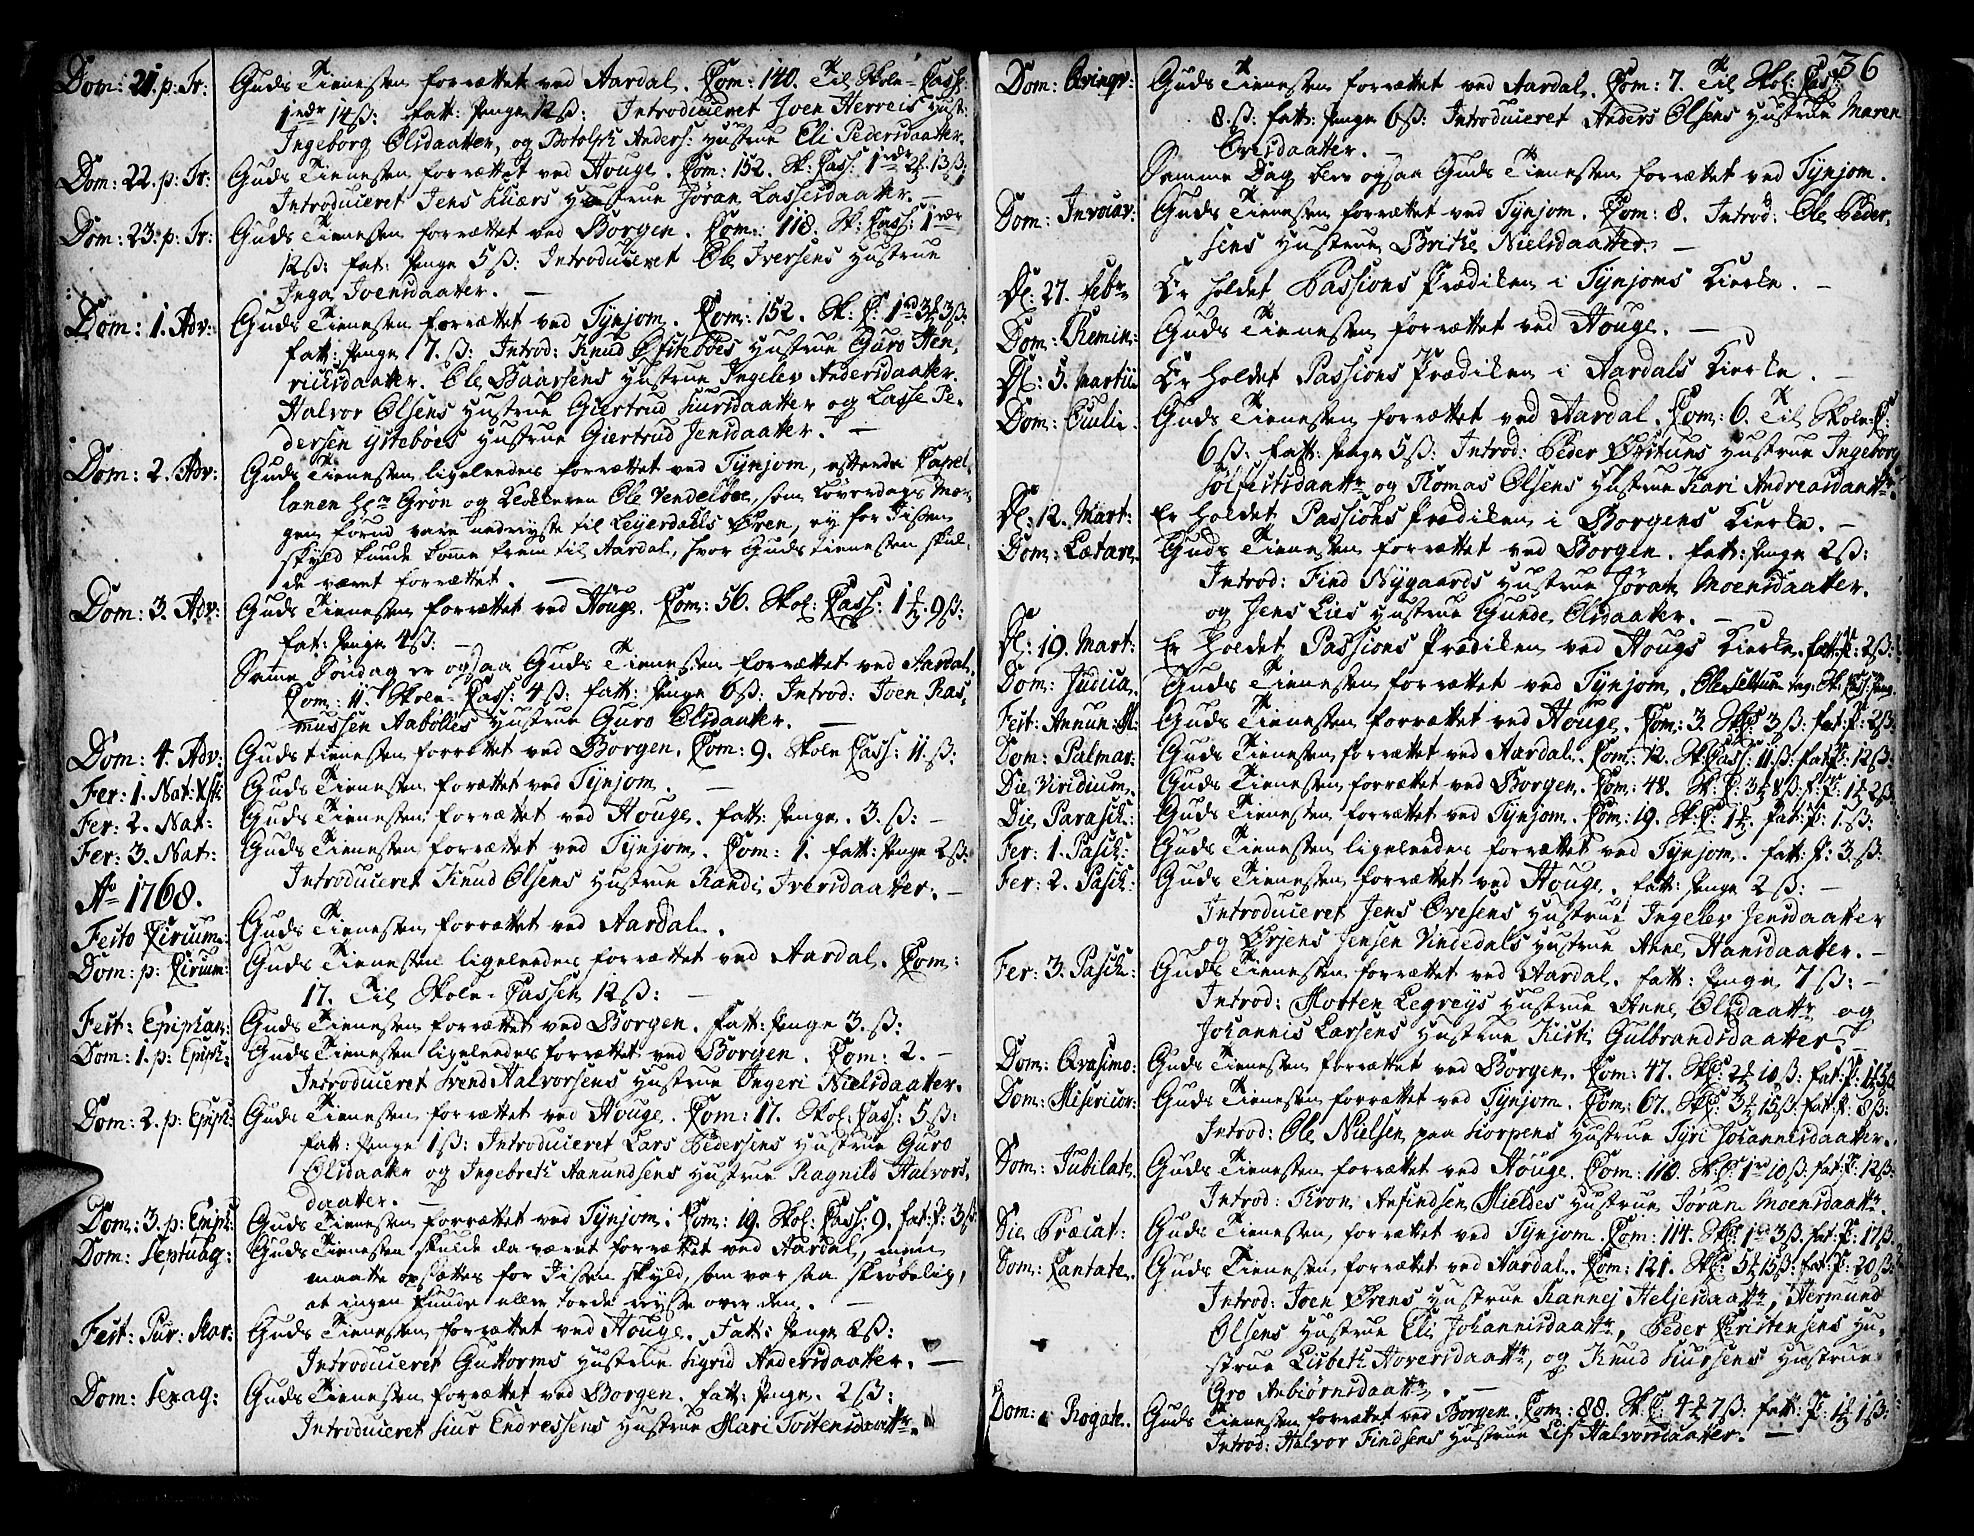 Dom: 21. p: Tr: Guds Tienesten forrættet ved Aardal. Com: 140. Til Skole-Cass:
1 rdr 14ß: fatt: Penge 12ß: Introduceret Joen Herreis Hust:
Ingeborg Olsdaatter, og Botolph Anders: Hustrue Eli Pedersdaatter.
Dom: 22. p: Tr: Guds Tienesten forrættet ved Houge. Com: 152. Sk: Cass: 1 rdr 13ß:
Introduceret Jens Hustrue Jøran Lassesdaatter.
Dom: 23. p: Tr: Guds Tienesten forrættet ved Borgen. Com: 118. Sk: Cass: 1 rdr
12ß: fat: Penge 5ß: Introduceret Ole Iversens Hustrue
Inga Joensdaatter.
Dom: 1. Adv: Guds Tienesten forrættet ved Tynjom. Com: 152. Sk: C: 1 rd 3ß:
fatt: Penge 17.ß: Introd: Knud Ystebøes Hustrue Guro Hen-
richsdaatter. Ole Baarsens Hustrue Ingelev Andersdaatter.
Halvor Olsens Hustrue Giertrud Siursdaatter og Lasse Pe-
dersen Ystebøes Hustrue Giertrud Jensdaatter.
Dom: 2. Adv: Guds Tienesten ligeleedes forrættet ved Tynjom, efterdi Capel-
lanen Hr Grøn og Klokkeren Ole Vendelboe, som Løverdags Mor-
gen forud vare nedreyste til Leyerdahls Øren, ey for Jissens
skyld kunde komme frem til Aardal, hvor Guds Tienesten skul-
de været forrættet.
Dom: 3. Adv: Guds Tienesten forrættet ved Houge. Com: 56. Skol: Cass: 1 9ß:
fat: Penge 4ß:
Samme Søndag er ogsaa Guds Tienesten forrættet ved Aardal.
Com: 11. Skole-Cass: 4ß: fatt: Penge 6ß: Introd: Joen Ras-
mussen Aabølles Hustrue Guro Olsdaatter.
Dom: 4. Adv: Guds tienesten forrettet ved Borgen. Com: 9. Skole Cass: 11.ß:
Fer: 1. Nat: Guds Tienesten forættet ved Tynjom.
Fer: 2. Nat: Guds Tienesten forrættet ved Houge. fatt: Penge. 3.ß:
Fer: 3. Nat: Guds Tienesten forrættet ved Tynjom. Com: 1. fatt: Penge 2ß:
Introduceret Knud Olsens Hustrue Randi Iversdaatter.
Ao 1768.
Festo Circum: Guds Tienesten forrættet ved Aardal.
Dom: p: Circum: Guds Tienesten ligeleedes forrættet ved Aardal. Com:
17. Til Skole-Cassen 12ß:
Fest: Epiphan: Guds Tienesten forrættet ved Borgen. fatt: Penge 3.ß:
Dom: 1. p: Epiph: Guds Tienesten ligeleedes forrættet ved Borgen. Com: 2.
Introduceret Svend Halvorsens Hustrue Ingeri Nielsdaatter.
Dom: 2. p: Epiph: Guds Tienesten forrættet ved Houge. Com: 17. Skol: Cass: 5ß:
fatt: Penge 1ß: Introduceret Lars Pedersens Hustrue Guro
Olsdaatter og Ingebreth Aamundsens Hustrue Ragnild Halvors-
daatter.
Dom: 3. p: Epiph: Guds Tienesten forrættet ved Tynjom. Com: 19. Skol: Cass: 9. fat: P: 3ß
Dom: Septuag: Guds Tienesten skulde da været forrættet ved Aardal, men
maatte opsættes for Jissen skyld, som var saa skrøbelig,
at ingen kunde eller torde reyse over den.
Fest: Pur: Mar: Guds Tienesten forrættet ved Houge. Fatt: Penge 2ß:
Introduceret Guttorms Hustrue Sigrid Andersdaatter.
Dom: Sexag: Guds Tienesten forrættet ved Borgen. fatt: Penge. 2ß:
Introduceret Siur Endressens Hustrue Mari Tostensdaattr.
36
Dom: Qvinqv: Guds Tienesten forrættet ved Aardal. Com: 7. Til Skol: Cass:
8.ß: fatt: Penge 6ß: Introduceret Anders Olsens Hustrue Maren
Ovesdaatter.
Samme Dag blev ogsaa Guds Tienesten forrættet ved Tynjom.
Dom: Invocav: Guds Tienesten forrættet ved Tynjom. Com: 8. Introd: Ole Peder-
sens Hustrue Brithe Nielsdaatter.
D: 27. Febr Er holdet Passions Prædiken i Tynjoms Kierke.
Dom: Remin: Guds Tienesten forrættet ved Houge.
D: 5. Martii Er holdet Passions Prædiken i Aardals Kierke.
Dom: Oculi. Guds Tienesten forrættet ved Aardal. Com: 6. Til Skole-C:
6ß: fatt: Penge 5ß: Introd: Peder Østtuns Hustrue Ingeborg
Sølfestsdaattr og Thomas Olsens Hustrue Kari Andreasdaattr.
D: 12. Mart: Er holdet Passions Prædiken i Borgens Kierke.
Dom: Lætare. Guds Tienesten forrættet ved Borgen. fatt: Penge 2ß:
Introd: Find Nygaards Hustrue Jøran Moensdaatter.
og Jens Lies Hustrue Gunde Olsdaatter.
D: 19. Mart: Er holdet Passions Prædiken ved Hougs Kierke. fatt: P: 2ß:
Dom: Judica. Guds Tienesten forrættet ved Tynjom.
Fest: Annun: M: Guds Tienesten forrættet ved Houge. Com: 3. Sk: C: 3ß: fat: P: 2ß:
Dom: Palmar: Guds Tienesten forrættet ved Aardal. Com: 12. Sk: Cass: 11.ß: fat: P: 12ß:
Die Viridium. Guds Tienesten forrættet ved Borgen. Com: 48. Sk: C: 3 8ß: f: P: 1 2ß
Die Parasch: Guds Tienesten forrættet ved Tynjom. Com: 19. Sk: C: 1 fat: P: 1.ß:
Fer: 1. Pasch: Guds Tienesten ligeleedes forrættet ved Tynjom. fatt: P: 3.ß:
Fer: 2. Pasch: Guds Tienesten forrættet ved Houge. fatt: Penge 2ß:
Introduceret Jens Ovesens Hustrue Ingelev Jensdaatter
og Ørjens Jensen Vindedals Hustrue Anne Hansdaatter.
Fer: 3. Pasch: Guds Tienesten forrættet ved Aardal. fatt: Penge 7ß:
Introd: Morten Legreys Hustrue Anne Olsdaattr og
Johannis Larsens Hustrue Kisti Gulbrandsdaatter.
Dom: Qvasimo: Guds Tienesten forrættet ved Borgen. Com: 47. Sk: C: 2 10ß: fat: P: 1
Dom: Misericor: Guds Tienesten forrættet ved Tynjom. Com: 67. Sk: C: 3 15ß: fat: P: 8ß:
Introd: Ole Nielsen paa Horpens Hustrue Tyri Johannisdaatter.
Dom: Jubilate. Guds Tienesten forrættet ved Houge. Com: 110. Sk: C: 1 10ß: fat: P: 12ß:
Introd: Tron Anfindsen Mieldes Hustrue Jøran Moensdaattr.
Die Præcat: Guds Tienesten forrættet ved Tynjom. Com: 114. Sk: C: 1 3ß: fat: P: 17ß:
Dom: Cantate. Guds Tienesten forrættet ved Aardal. Com: 121. Sk: C: 5 15ß: fat: P: 20ß:
Introd: Joen Ørens Hustrue Rannej Heljesdaattr, Hermund
Olsens Hustrue Eli Johannisdaattr, Peder Christensens Hu-
strue Lisbeth Hoversdaattr, og Knud Siursens Hustrue
Gro Anbiørnsdaattr.
Dom: Rogate. Guds Tienesten forrættet ved Borgen. Com: 88. Sk: C: 4 7ß: fatt: P: 1 1ß:
Introd: Halvor Findsens Hustrue Lisi Halvorsdaatter.